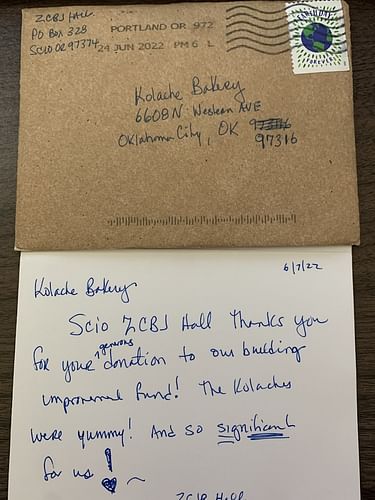 ZCBJ Hall
PO Box 328
Scio OR 97374
PORTLAND OR 972
24 JUN 2022 PM 6 L
FOREVER
Kolache Bakery
6608 N Western AVE
Oklahoma City, OK
97316
6/7/22
Kolache Bakery
Scio ZCBJ Hall Thanks you
for your generous donation to our building
improvement fund! The Kolaches
were yummy! And so significant
for us!
ZCBJ Hall